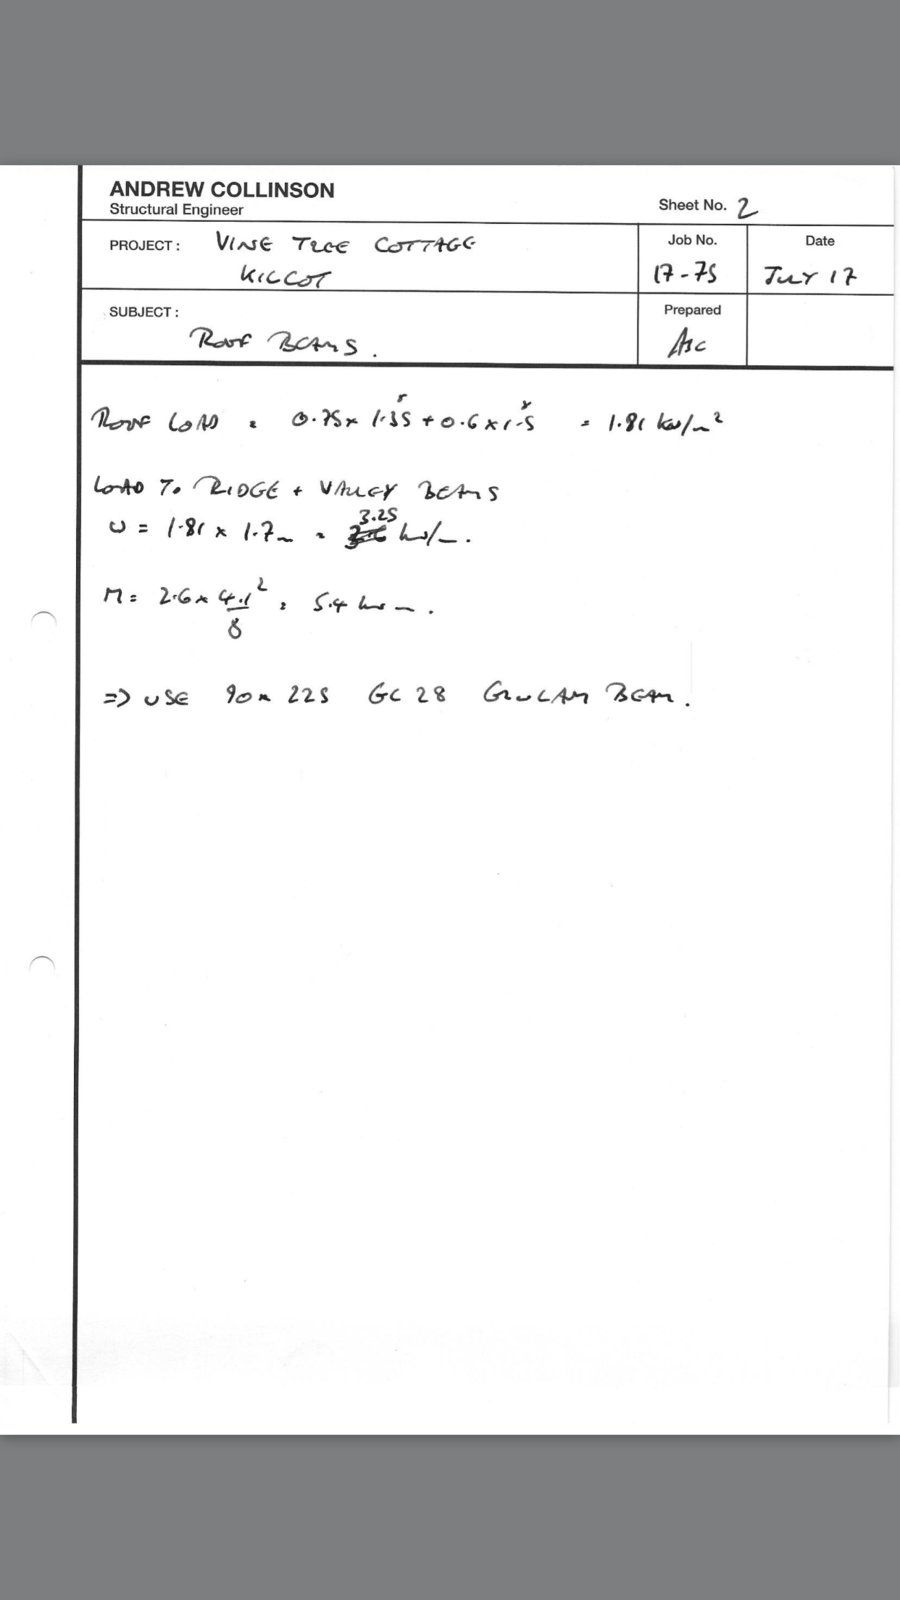 ANDREW COLLINSON
Structural Engineer
Sheet No. 2
PROJECT : VINE TREE COTTAGE
KILCOT
Job No.
17-75
Date
JULY 17
SUBJECT :
ROOF BEAMS.
Prepared
ASC
ROOF LOAD = 0.75 x 1.35 + 0.6 x 1.5 = 1.81 kN/m²
LOAD TO RIDGE + VALLEY BEAMS
3.25
W = 1.81 x 1.7m = kN/m.
M = 2.6 x 4.1² / 8 = 5.4 kNm.
=> USE 90 x 225 GL 28 GLULAM BEAM.